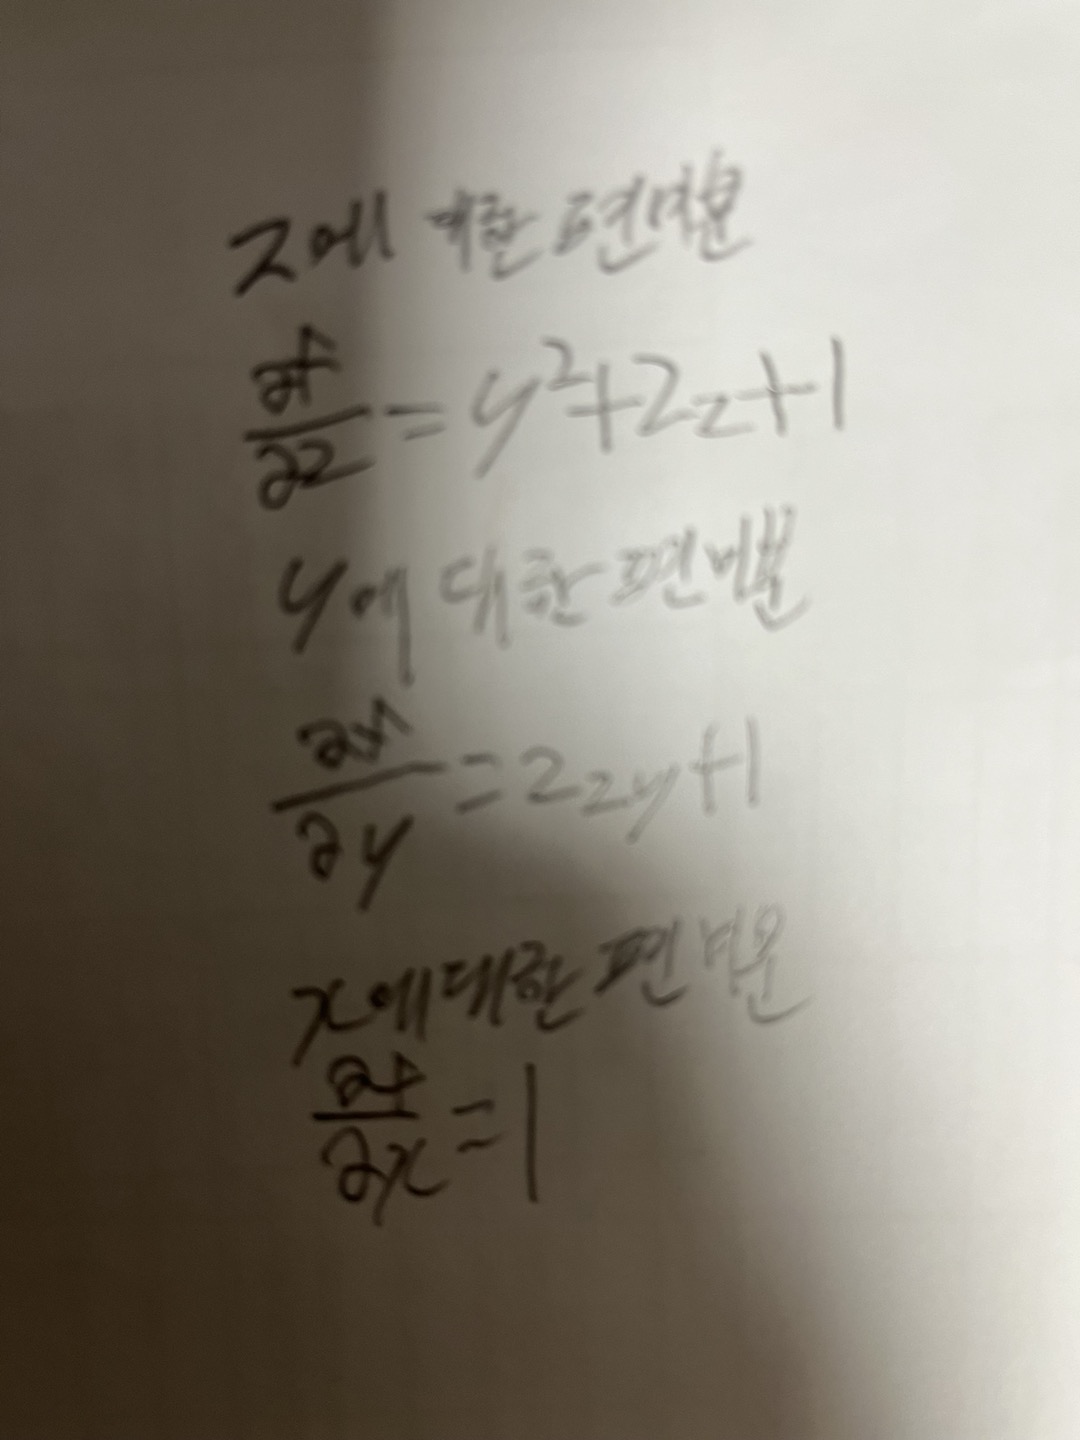 z에 대한 편미분
∂f/∂z = y²+2z+1
y에 대한 편미분
∂f/∂y = 2zy+1
x에 대한 편미분
∂f/∂x = 1